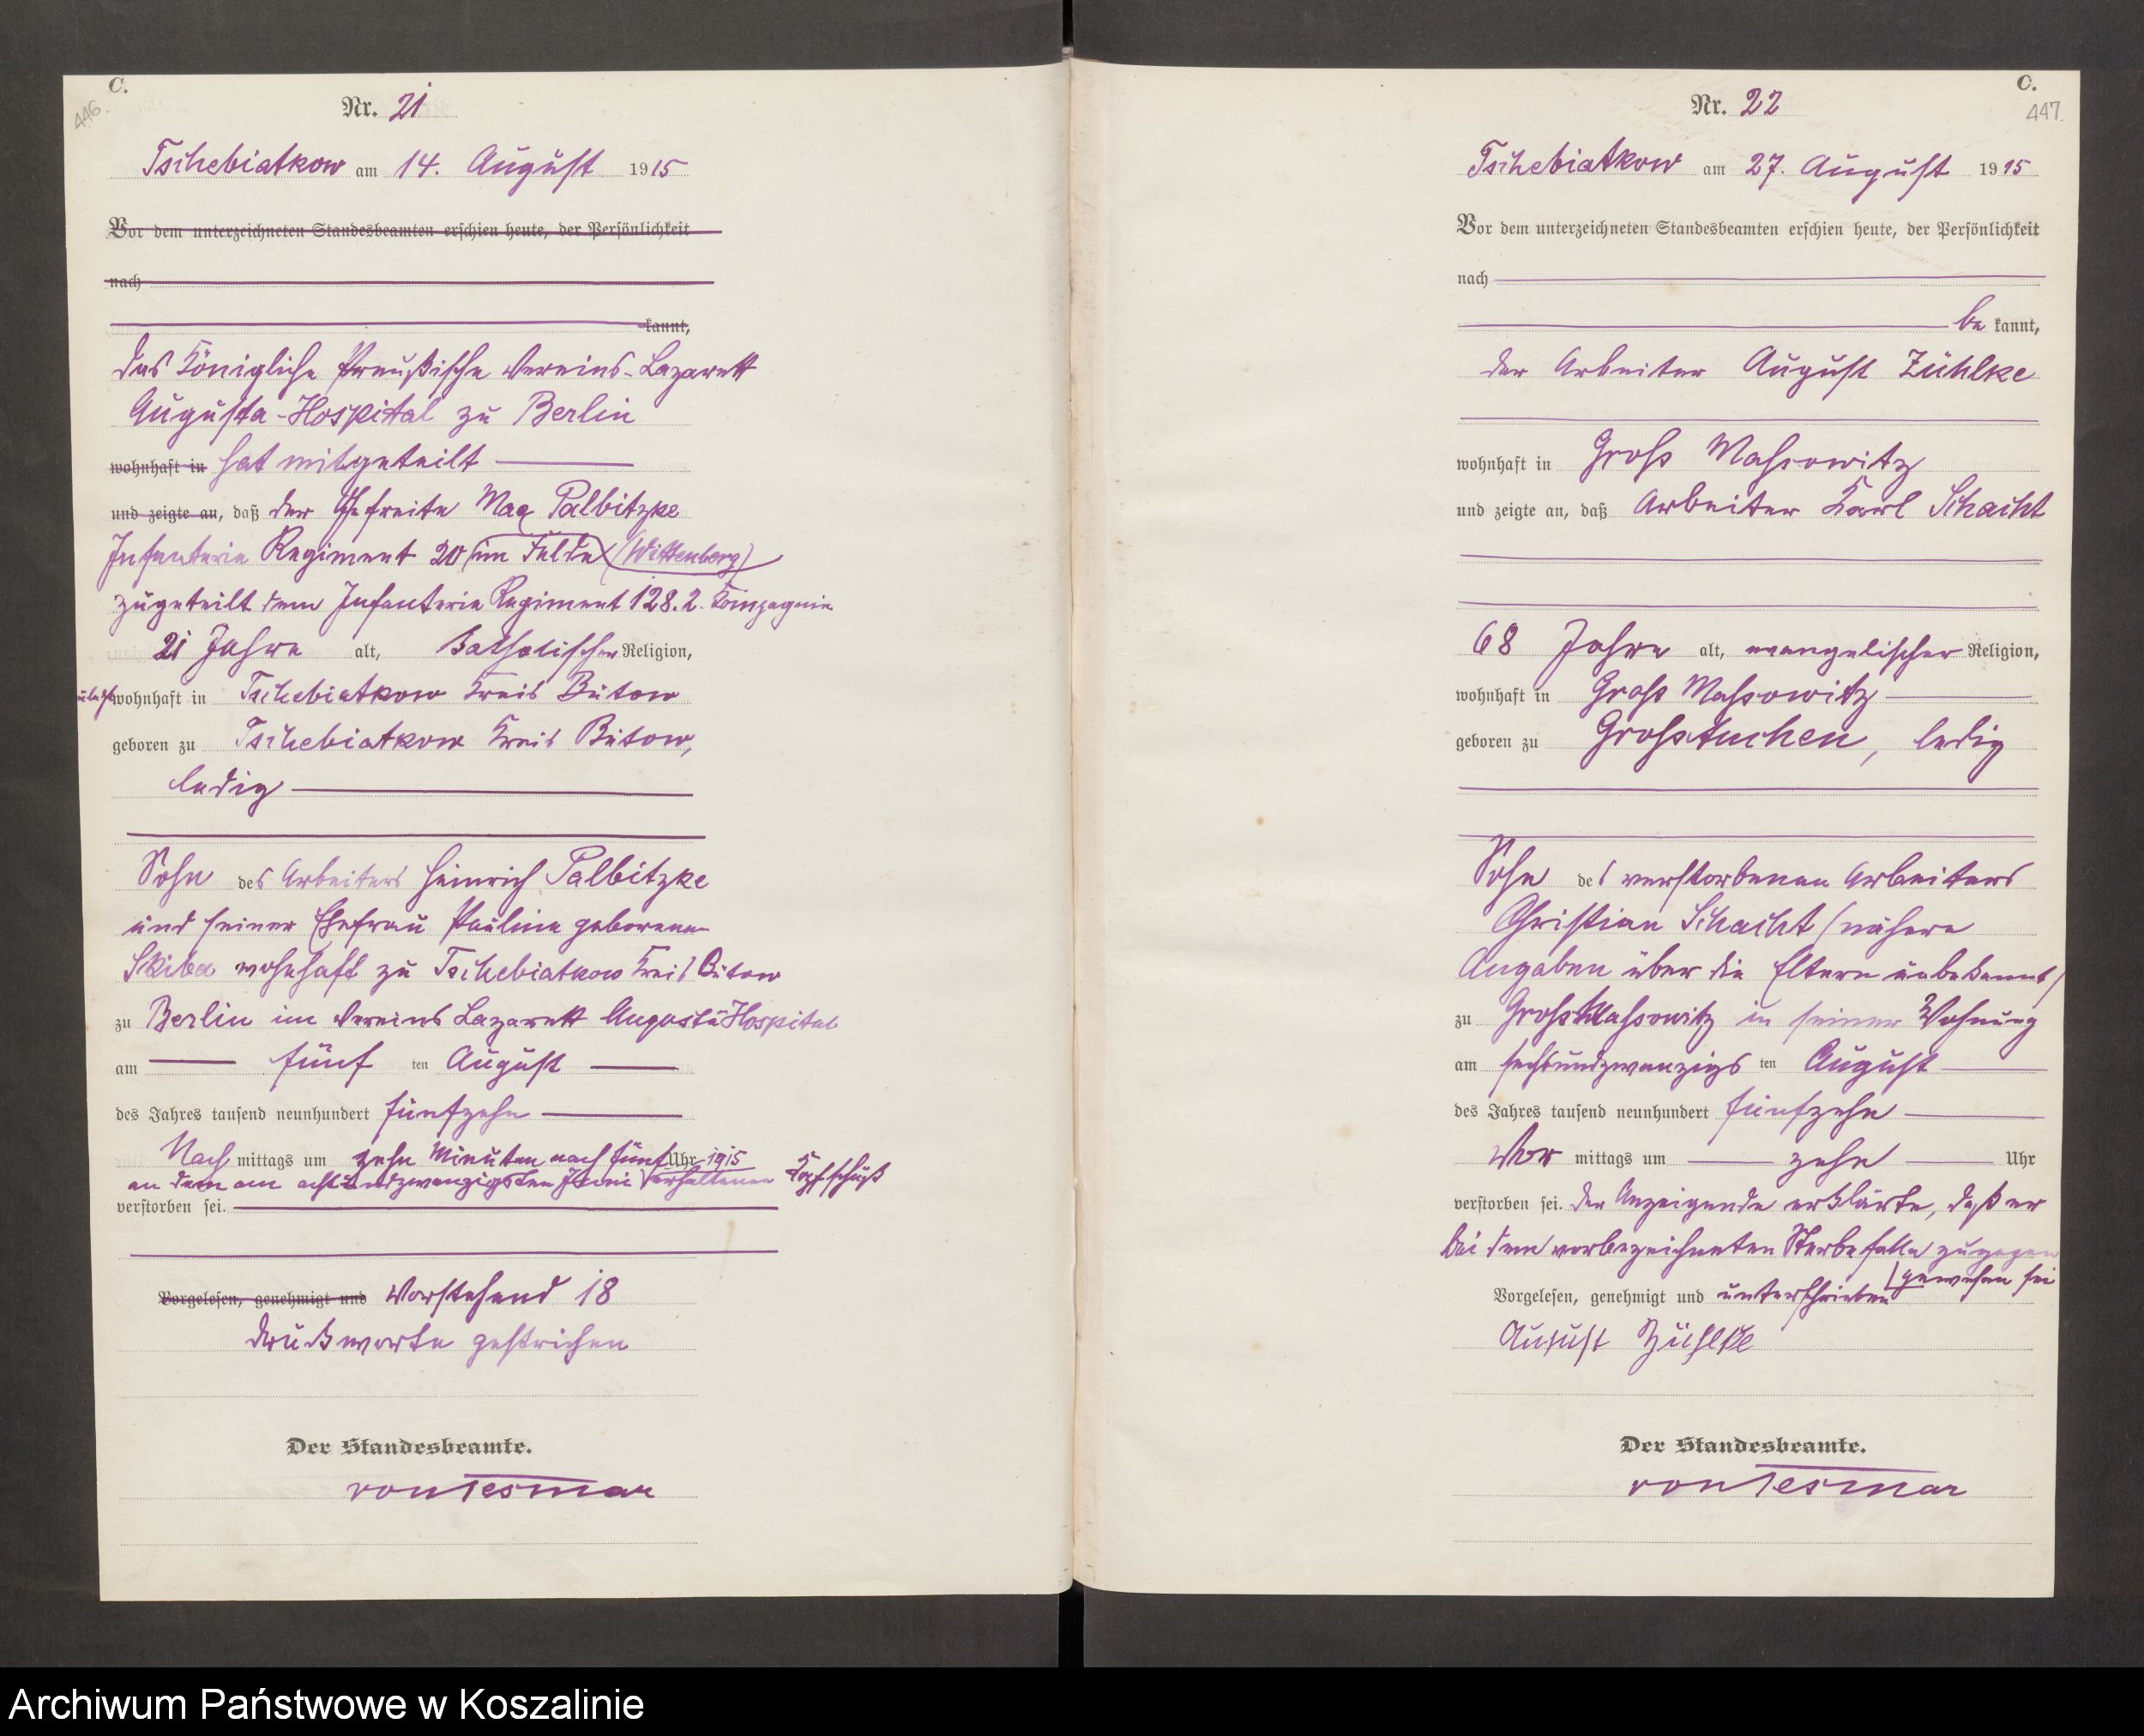 C.
446.
Nr. 21
Tschebiatkow am 14. August 1915
Vor dem unterzeichneten Standesbeamten erschien heute, der Persönlichkeit
nach
kannt,
das Königliche Preußische Vereins-Lazarett
Augusta-Hospital zu Berlin
wohnhaft in hat mitgeteilt
und zeigte an, daß der Gefreite Max Palbitzke
Infanterie Regiment 20 im Felde (Wittenberg)
zugeteilt dem Infanterie Regiment 128. 2. Kompagnie
21 Jahre alt, katholischer Religion,
zuletzt wohnhaft in Tschebiatkow Kreis Bütow
geboren zu Tschebiatkow Kreis Bütow,
ledig
Sohn des Arbeiters Heinrich Palbitzke
und seiner Ehefrau Pauline geborenen
Skiba wohnhaft zu Tschebiatkow Kreis Bütow
zu Berlin im Vereins Lazarett Augusta Hospital
am fünf ten August
des Jahres tausend neunhundert fünfzehn
Nach mittags um zehn Minuten nach fünf Uhr 1915
an dem am achtundzwanzigsten Juni erhaltenen Kopfschuß
verstorben sei.
Vorgelesen, genehmigt und Vorstehend 18
Druckworte gestrichen
Der Standesbeamte.
von Tesmar
C.
447.
Nr. 22
Tschebiatkow am 27. August 1915
Vor dem unterzeichneten Standesbeamten erschien heute, der Persönlichkeit
nach
be kannt,
der Arbeiter August Zühlke
wohnhaft in Gross Massowitz
und zeigte an, daß Arbeiter Karl Schacht
68 Jahre alt, evangelischer Religion,
wohnhaft in Gross Massowitz
geboren zu Grosstuchen, ledig
Sohn des verstorbenen Arbeiters
Christian Schacht (nähere
Angaben über die Eltern unbekannt)
zu Gross Massowitz in seiner Wohnung
am sechsundzwanzigs ten August
des Jahres tausend neunhundert fünfzehn
Vor mittags um zehn Uhr
verstorben sei. Der Anzeigende erklärte, daß er
bei dem vorbezeichneten Sterbefalle zugegen
gewesen sei
Vorgelesen, genehmigt und unterschrieben
August Zühlke
Der Standesbeamte.
von Tesmar
Archiwum Państwowe w Koszalinie